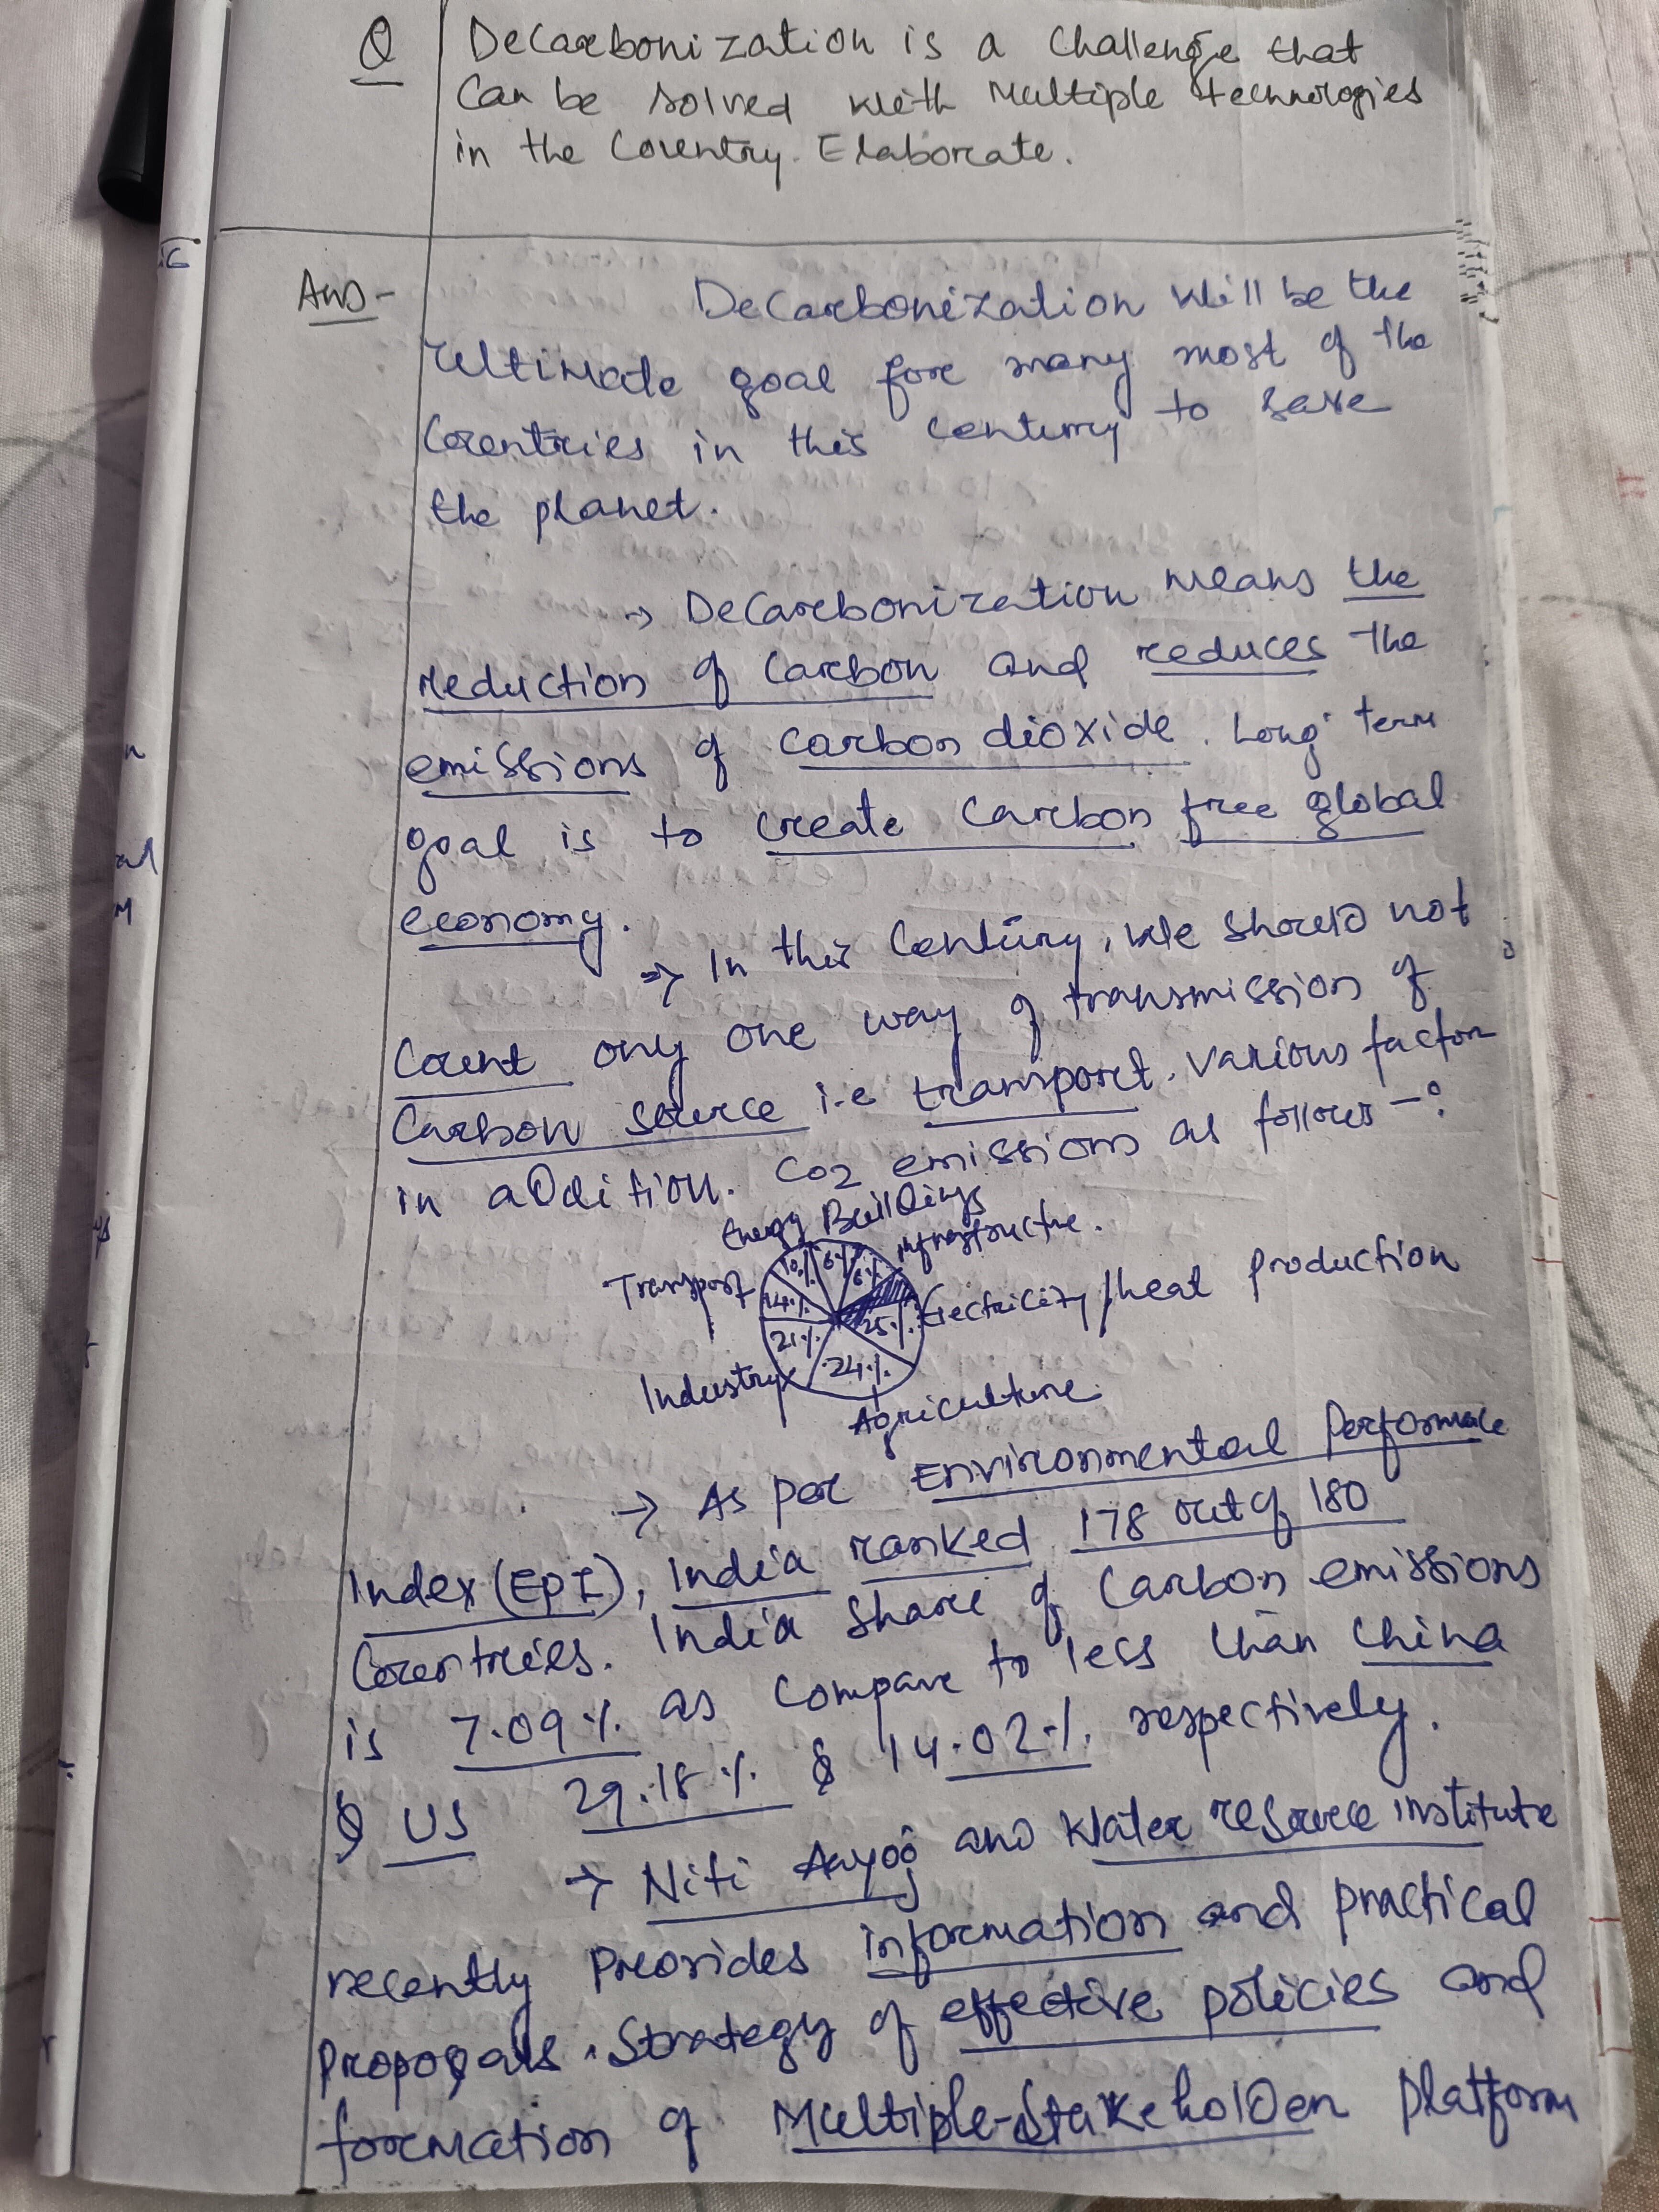 Q Decarbonization is a challenge that
can be solved with Multiple technologies
in the Country. Elaborate.
Ans- Decarbonization will be the
ultimate goal for many most of the
Countries in this century to save
the planet.
→ Decarbonization means the
reduction of Carbon and reduces the
emissions of carbon dioxide. Long term
goal is to create Carbon free global
economy.
⇒ In this Century, We should not
Count only one way of transmission of
Carbon source i.e transport. Various factor
in addition. CO2 emissions as follows -:
Energy Buildings
infrastructure.
10% 6% 6%
Transport 14% 25% Electricity/heat Production
21% 24%
Industry
Agriculture
→ As per Environmental Performance
Index (EPI), India ranked 178 out of 180
Countries. India share of Carbon emissions
is 7.09% as compare to less than China
& US 29.18% & 14.02% respectively.
→ Niti Aayog and Water resource institute
recently provides information and practical
proposals. Strategy of effective policies and
formation of Multiple-Stakeholder Platform